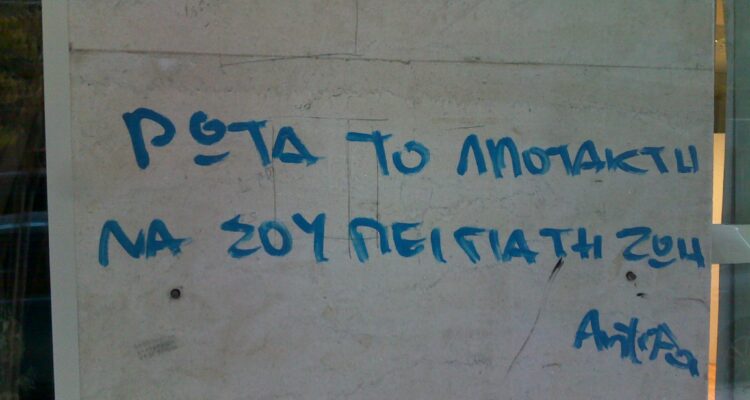 ΡΩΤΑ ΤΟ ΛΗΠΟΤΑΚΤΗ
ΝΑ ΣΟΥ ΠΕΙ ΓΙΑ ΤΗ ΖΩΗ